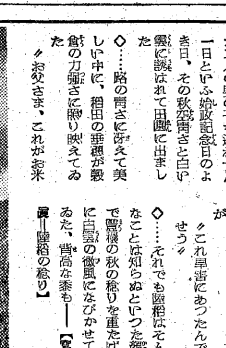 一日といふ始政記念日のよ
き日、その秋空靑さと白い
雲に誘はれて田園に出まし
た
◇……路の靑さに冴えて美
しい中に、稻田の垂穗が穀
倉の力强さに照り映えてゐ
た
〝お父さま、これがお米
が
〝これ旱害にあつたんで
せう〟
◇……それでも陸稻はそん
なことは知らぬといつた
で豐穰の秋の稔りを重たげ
に白雲の微風になびかせて
ゐた、背高な黍も——【寫
眞＝陸稻の稔り】